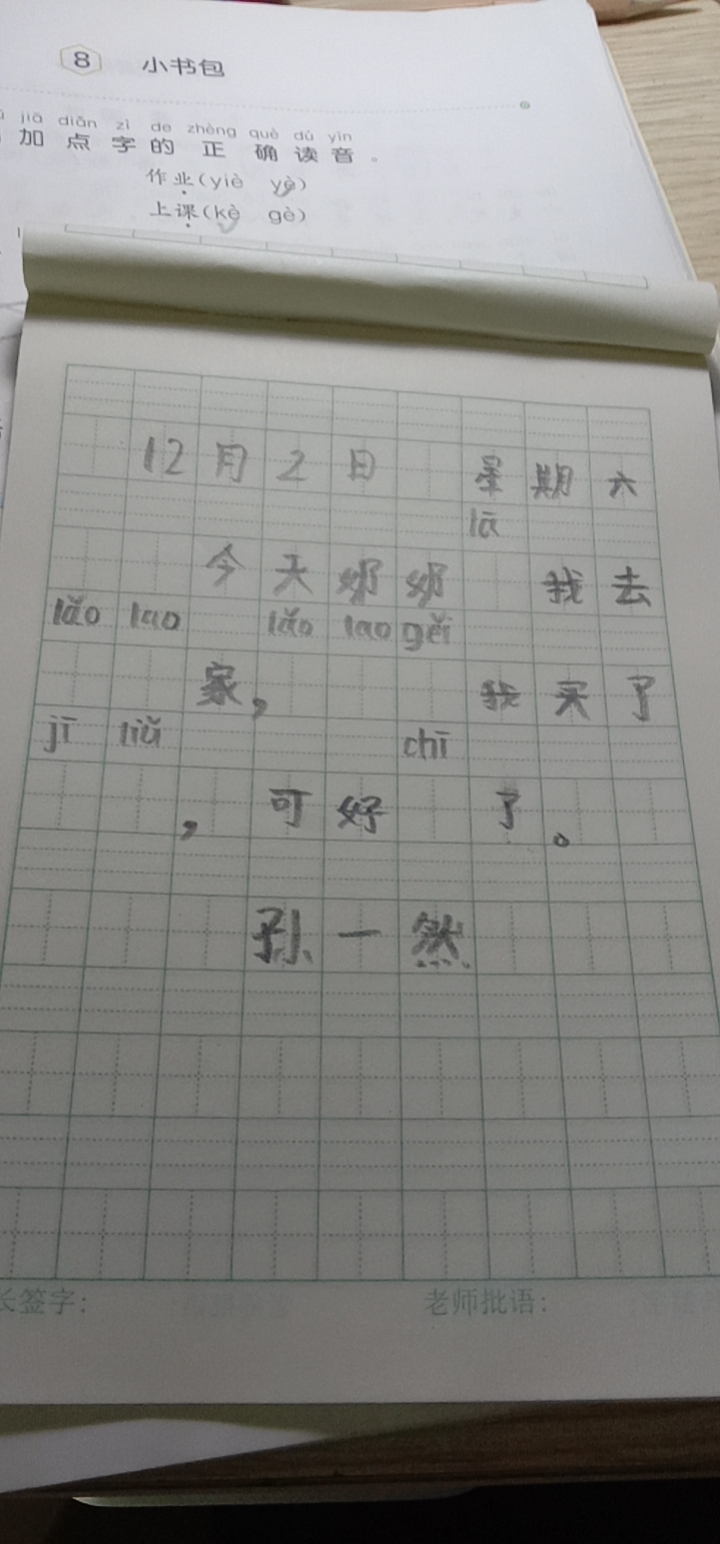 8 小书包
jiā diǎn zì de zhèng què dú yīn
加点字的正确读音。
作业(yiè yè)
上课(kè gè)
12月2日 星期六
lā
今天奶奶 我去
lǎo lao lǎo lao gěi
家， 我买了
jī liǔ chī
，可好 了。
孙一然
长签字： 老师批语：